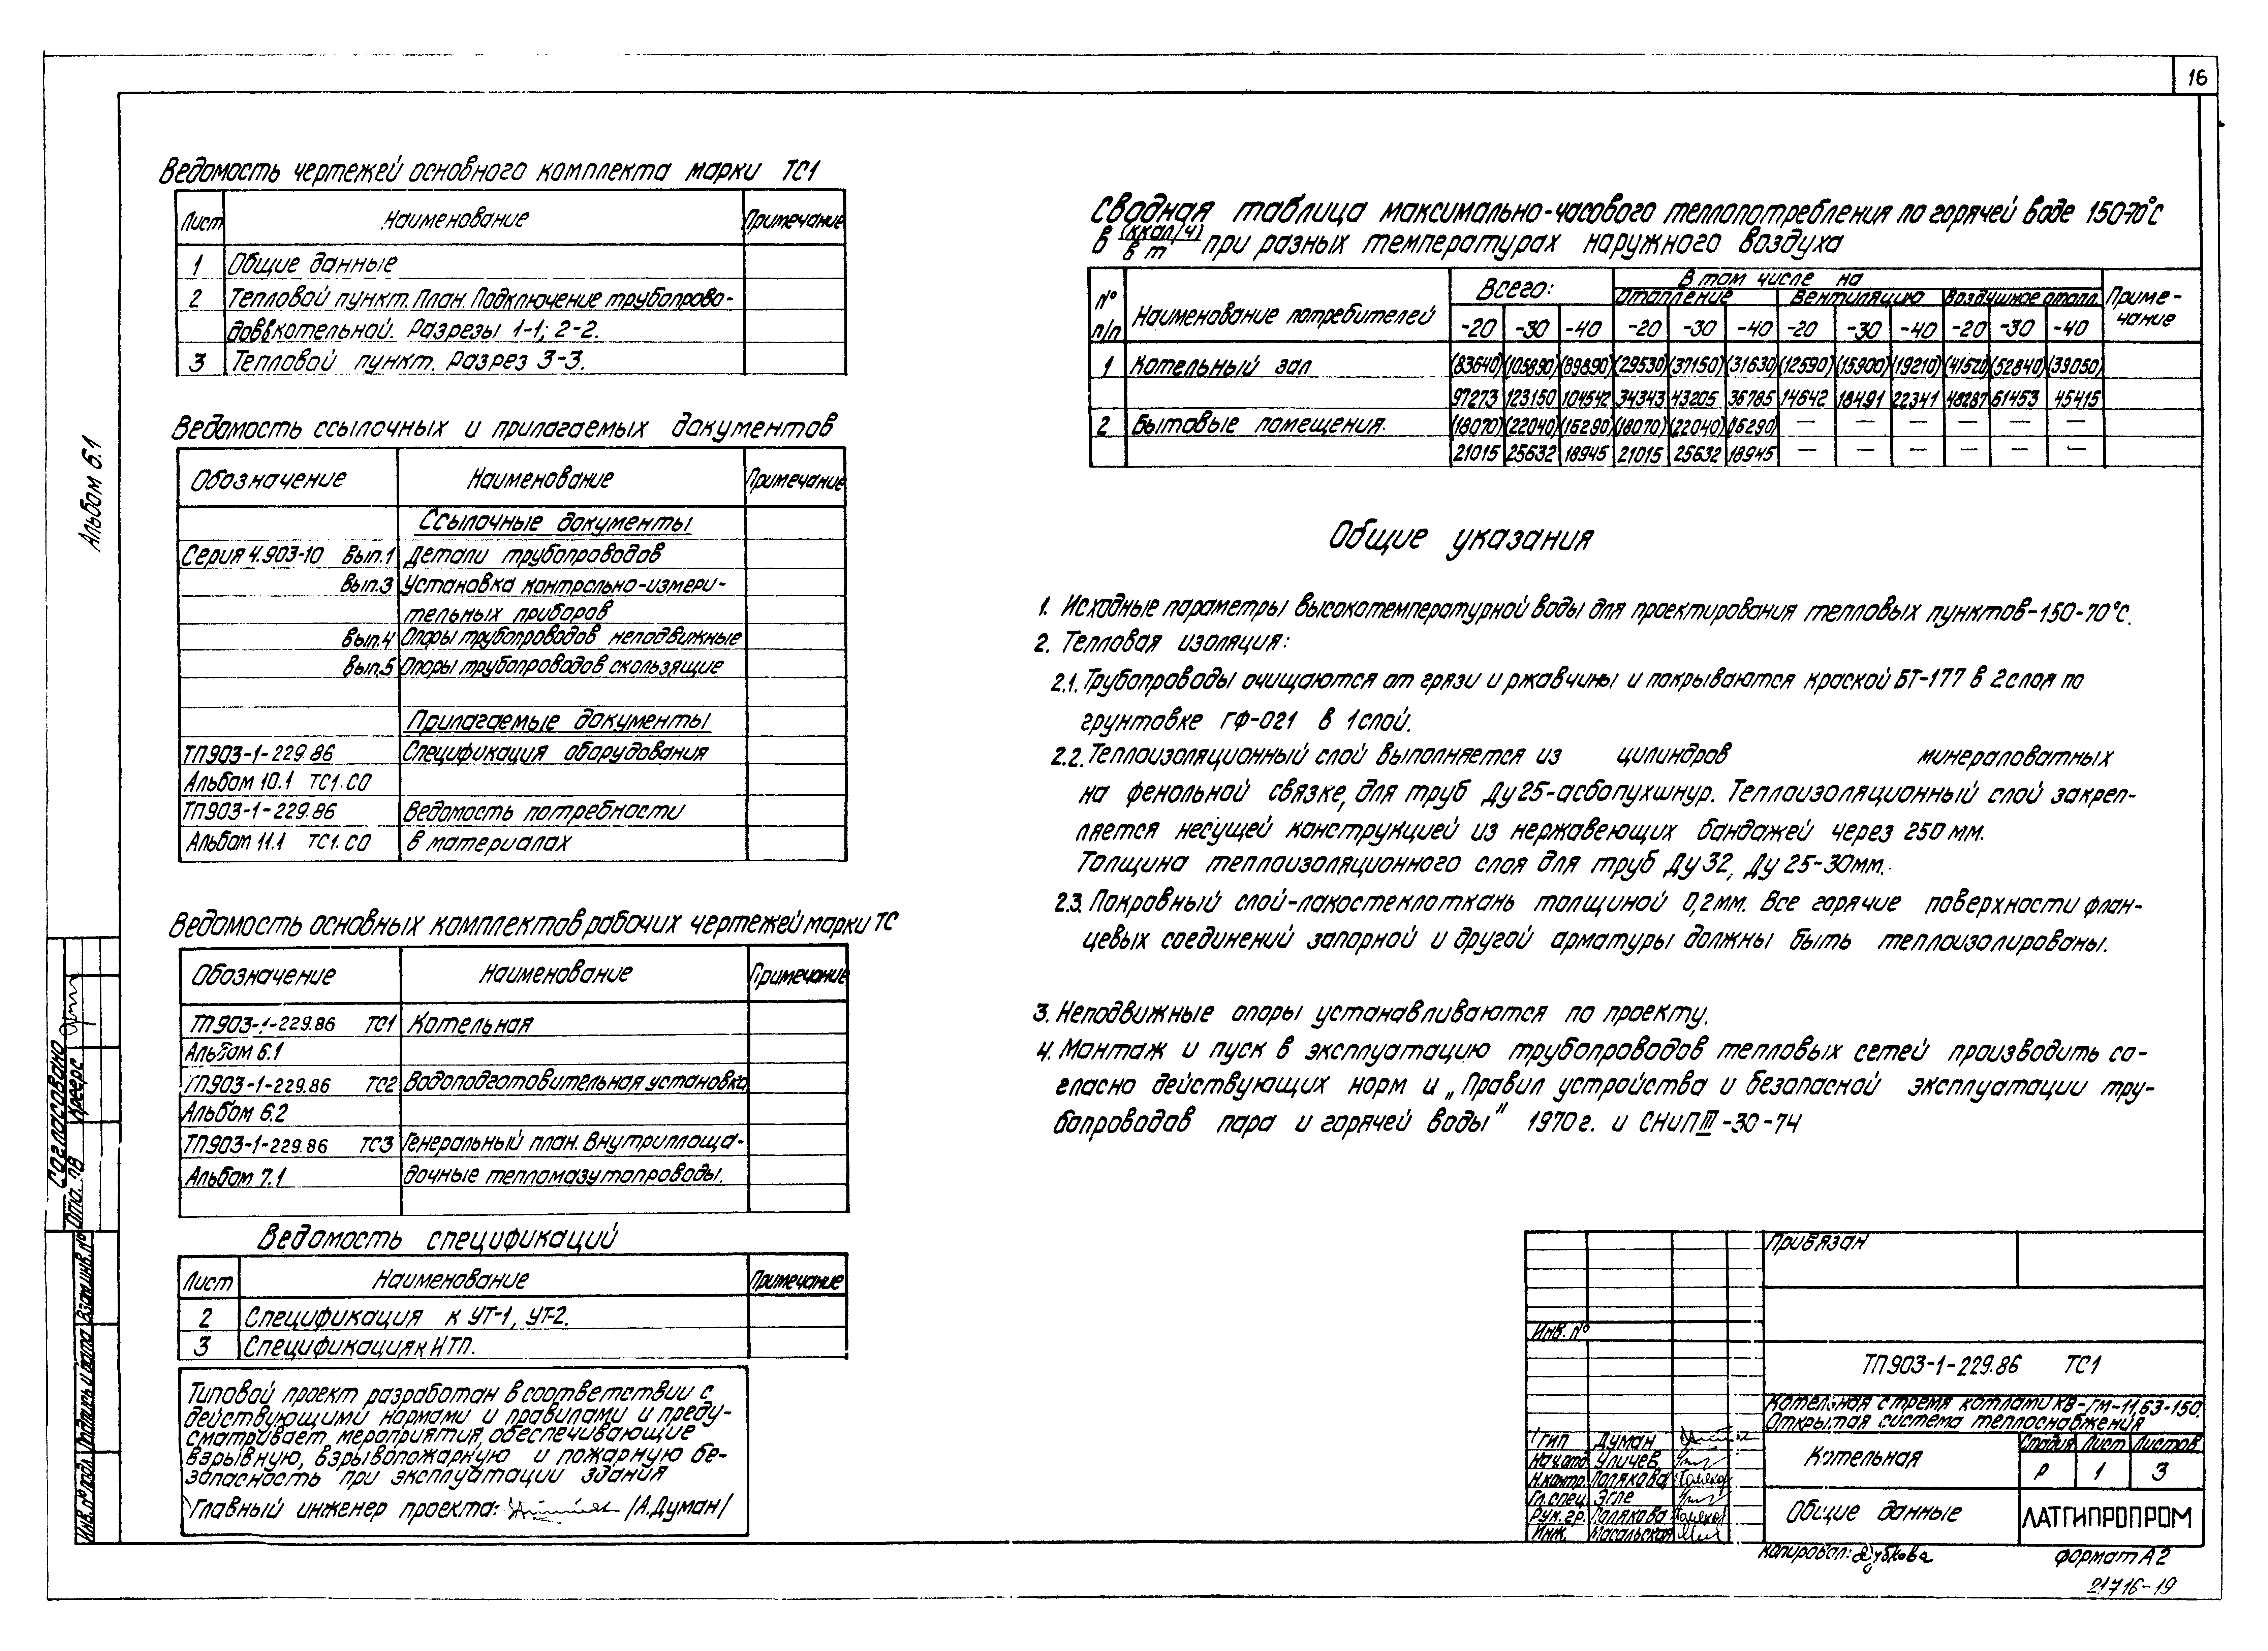 16
Альбом 6.1
Ведомость чертежей основного комплекта марки ТС1
Лист Наименование Примечание
1 Общие данные
2 Тепловой пункт. План. Подключение трубопрово-
дов в котельной. Разрезы 1-1; 2-2.
3 Тепловой пункт. Разрез 3-3.
Ведомость ссылочных и прилагаемых документов
Обозначение Наименование Примечание
Ссылочные документы
Серия 4.903-10 Вып.1 Детали трубопроводов
Вып.3 Установка контрольно-измери-
тельных приборов
Вып.4 Опоры трубопроводов неподвижные
Вып.5 Опоры трубопроводов скользящие
Прилагаемые документы
ТП903-1-229.86 Спецификация оборудования
Альбом 10.1 ТС1.СО
ТП903-1-229.86 Ведомость потребности
Альбом 11.1 ТС1.СО в материалах
Ведомость основных комплектов рабочих чертежей марки ТС
Обозначение Наименование Примечание
ТП903-1-229.86 ТС1 Котельная
Альбом 6.1
ТП903-1-229.86 ТС2 Водоподготовительная установка
Альбом 6.2
ТП903-1-229.86 ТС3 Генеральный план. Внутриплоща-
Альбом 7.1 дочные тепломазутопроводы.
Ведомость спецификаций
Лист Наименование Примечание
2 Спецификация к УТ-1, УТ-2.
3 Спецификация к ИТП.
Типовой проект разработан в соответствии с
действующими нормами и правилами и преду-
сматривает мероприятия, обеспечивающие
взрывную, взрывопожарную и пожарную бе-
зопасность при эксплуатации здания
Главный инженер проекта: /А.Думан/
Сводная таблица максимально-часового теплопотребления по горячей воде 150-70°С
в (ккал/ч)/в т при разных температурах наружного воздуха
№ п/п Наименование потребителей Всего: В том числе на Приме-
чание
Отопление Вентиляцию Воздушное отопл.
-20 -30 -40 -20 -30 -40 -20 -30 -40 -20 -30 -40
1 Котельный зал (83640) (105890) (89890) (29530) (37150) (31630) (12590) (15900) (19210) (41520) (52840) (39050)
97273 123150 104542 34343 43205 36785 14642 18491 22341 48287 61453 45415
2 Бытовые помещения. (18070) (22040) (16290) (18070) (22040) (16290) — — — — — —
21015 25632 18945 21015 25632 18945 — — — — — —
Общие указания
1. Исходные параметры высокотемпературной воды для проектирования тепловых пунктов-150-70°С.
2. Тепловая изоляция:
2.1. Трубопроводы очищаются от грязи и ржавчины и покрываются краской БТ-177 в 2 слоя по
грунтовке ГФ-021 в 1 слой.
2.2. Теплоизоляционный слой выполняется из цилиндров минераловатных
на фенольной связке, для труб Ду 25-асбопухшнур. Теплоизоляционный слой закреп-
ляется несущей конструкцией из нержавеющих бандажей через 250 мм.
Толщина теплоизоляционного слоя для труб Ду 32, Ду 25-30мм.
2.3. Покровный слой-лакостеклоткань толщиной 0,2мм. Все горячие поверхности флан-
цевых соединений запорной и другой арматуры должны быть теплоизолированы.
3. Неподвижные опоры устанавливаются по проекту.
4. Монтаж и пуск в эксплуатацию трубопроводов тепловых сетей производить со-
гласно действующих норм и „Правил устройства и безопасной эксплуатации тру-
бопроводов пара и горячей воды" 1970г. и СНиП III-30-74
Согласовано
Отд. ПВ Креерс
Инв.№подл. Подпись и дата Взам.инв.№
Привязан
Инв. №
ТП903-1-229.86 ТС1
Котельная с тремя котлами КВ-ГМ-11,63-150.
Открытая система теплоснабжения
ГИП Думан
Нач.отд Уличев
Н.контр. Полякова
Гл.спец Эгле
Рук.гр. Полякова
Инж. Масальская
Котельная Стадия Лист Листов
Р 1 3
Общие данные ЛАТГИПРОПРОМ
Копировал: Дубкова формат А2
21716-19